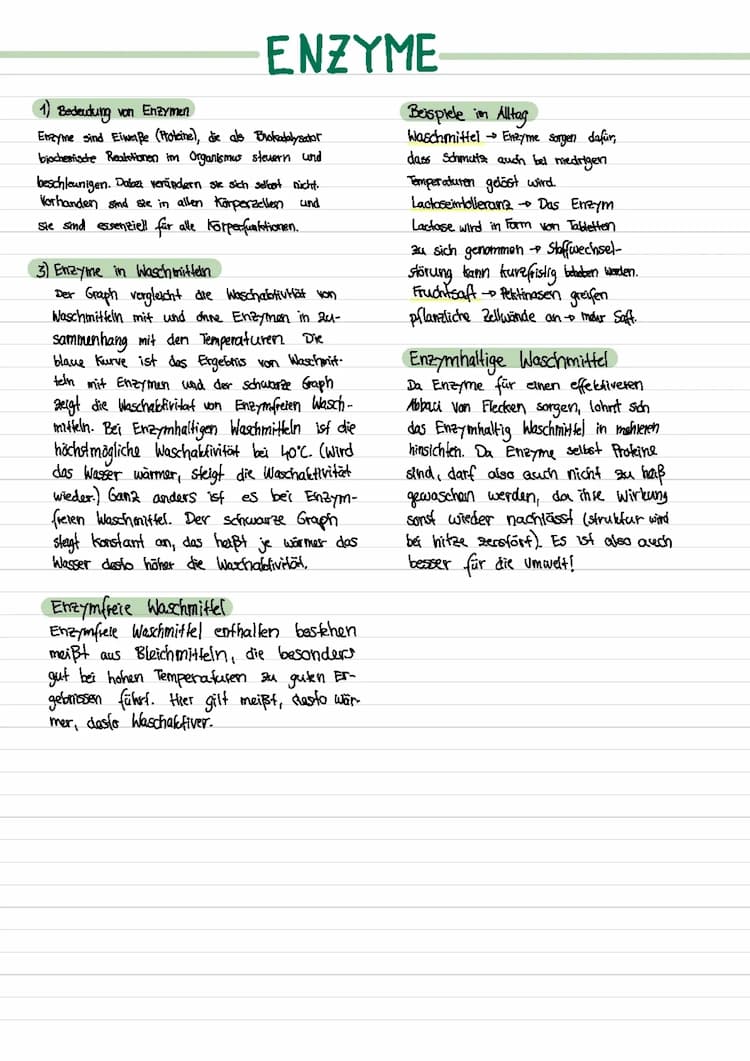 ENZYME
1) Bedeutung von Enzymen
Enzyme sind Eiweiße (Proteine), die als Biokatalysator
biochemische Reaktionen im Organismus steuern und
beschleunigen. Dabei verändern sie sich selbst nicht.
Vorhanden sind sie in allen Körperzellen und
sie sind essenziell für alle Körperfunktionen.
3) Enzyme in Waschmitteln
Der Graph vergleicht die Waschaktivität von
Waschmitteln mit und ohne Enzymen in zu-
sammenhang mit den Temperaturen. Die
blaue Kurve ist das Ergebnis von Waschmit-
teln mit Enzymen und der schwarze Graph
zeigt die Waschaktivität von Enzymfreien Wasch-
mitteln. Bei Enzymhaltigen Waschmitteln ist die
höchstmögliche Waschaktivität bei 40°C. (Wird
das Wasser wärmer, steigt die Waschaktivität
wieder.) Ganz anders ist es bei Enzym-
freien Waschmittel. Der schwarze Graph
steigt konstant an, das heißt je wärmer das
Wasser desto höher die Waschaktivität.
Enzymfreie Waschmittel
Enzymfreie Waschmittel enthalten bestehen
meißt aus Bleichmitteln, die besonders
gut bei hohen Temperaturen zu guten Er-
gebnissen führt. Hier gilt meißt, desto wär-
mer, desto Waschaktiver.
Beispiele im Alltag
Waschmittel → Enzyme sorgen dafür,
dass Schmutz auch bei niedrigen
Temperaturen gelöst wird.
Lactoseintolleranz → Das Enzym
Lactase wird in Form von Tabletten
zu sich genommen → Stoffwechsel-
störung kann kurzfristig behoben werden.
Fruchtsaft → Pektinasen greifen
pflanzliche Zellwände an → mehr Saft.
Enzymhaltige Waschmittel
Da Enzyme für einen effektiveren
Abbau von Flecken sorgen, lohnt sich
das Enzymhaltig Waschmittel in mehreren
hinsichten. Da Enzyme selbst Proteine
sind, darf also auch nicht zu heiß
gewaschen werden, da ihre Wirkung
sonst wieder nachlässt (struktur wird
bei hitze zerstört). Es ist also auch
besser für die Umwelt!